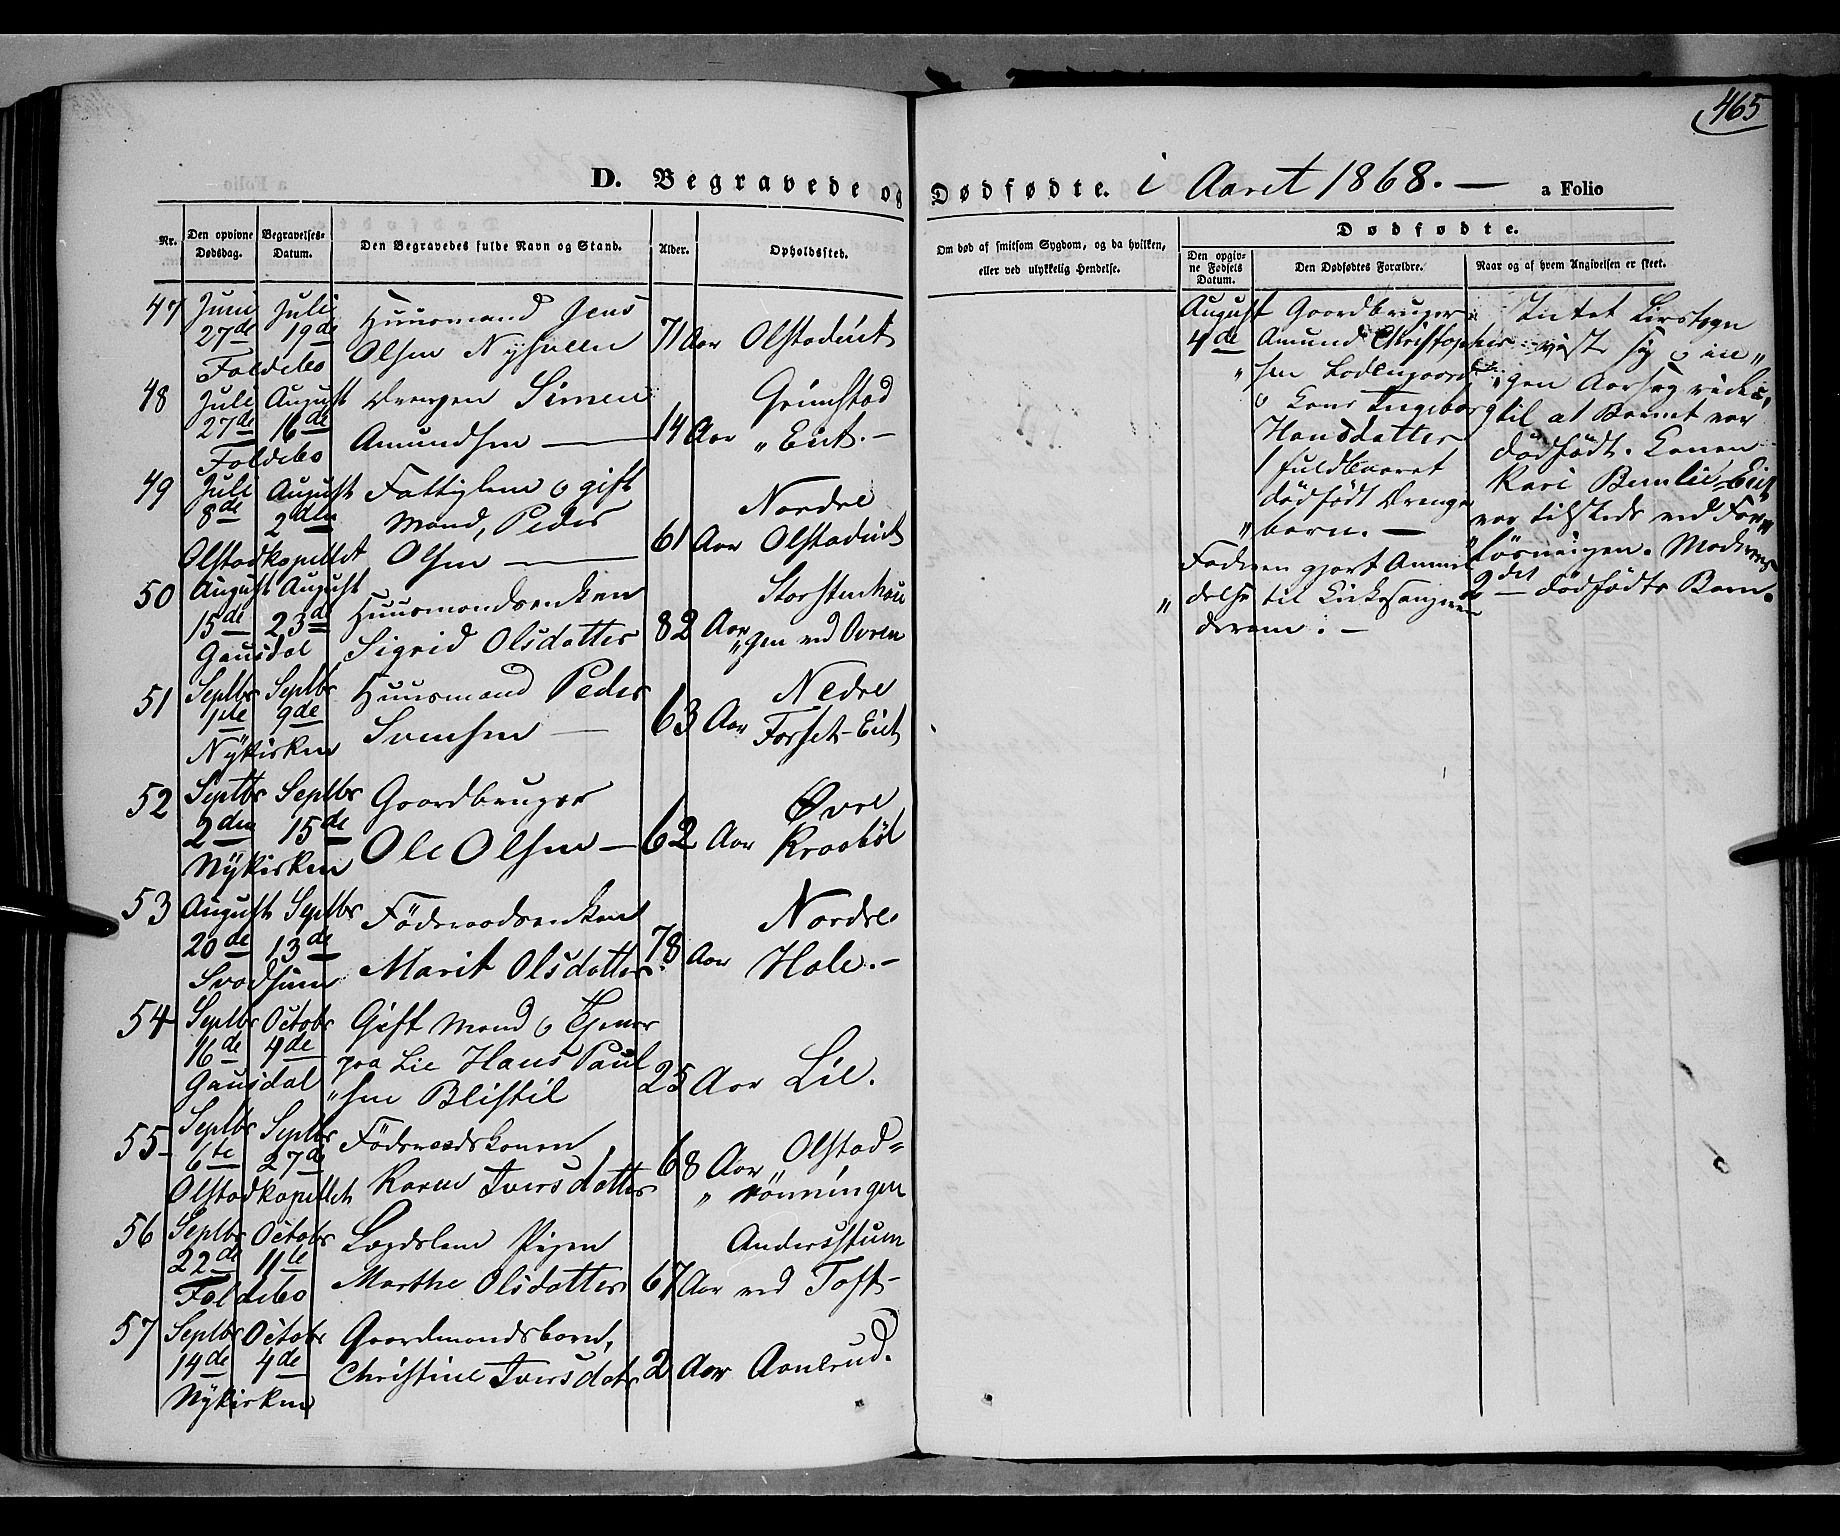 465
D. Begravede og Dødfødte. i Aaret 1868. — a Folio
Nr. Den opgivne Dødsdag. Begravelses-Datum. Den Begravedes fulde Navn og Stand. Alder. Opholdssted.
Om død af smitsom Sygdom, og da hvilken, eller ved ulykkelig Hendelse.
Dødfødte.
Den opgivne Fødsels Datum. Den Dødfødtes Forældre. Naar og af hvem Angivelsen er skeet.
47 Juni Juli Huusmand Jens
27de 19de Olsen 71 Aar Olstadeiet
Foldebo
48 Juli August Drengen Simen Grimstad
27de 16de Amundsen — 14 Aar „Eiet.-
Foldebo
49 Juli August Fattiglem o gift Nordre
8de 2den Mand, Peder 61 Aar Olstadeiet
Olstadkapellet Olsen —
50 August August Huusmandsenken Storstenhau
15de 23de Sigrid Olsdatter 82 Aar „gen ved Ovren
Gausdal
51 Septbr Septbr Huusmand Peder Nedre
1ste 9de Svensen — 63 Aar Forset-Eiet
Nÿkirken
52 Septbr Septbr Gaardbruger Øvre
2den 15de Ole Olsen — 62 Aar Kraabøl
Nÿkirken
53 August Septbr Föderaadsenken Nordre
20de 13de Marit Olsdatter. 78 Aar Hole.-
Svadsum
54 Septbr Octobr Gift Mand o Tjener
16de 4de paa Lie Hans Paul 25 Aar Lie.
Gausdal „sen Blistil
55 Septbr Septbr Föderaadskonen
6te 27de Karen Iversdatter 68 Aar Olstad=
Olstadkapellet „rönningen
56 Septbr Octobr Lægdslem Pigen Andersstuen
22de 11te Marthe Olsdatter 67 Aar ved Toft-
Foldebo
57 Septbr Octobr Gaardmandsbarn,
14de 4de Christine Iversdatr 2 Aar Aanerud.
Nÿkirken
August Gaardbruger
4de Amund Christopher
„sen
o Kone Ingeborg
Hansdatter
1 fuldbaaret
dødfødt Drenge
„barn. —
Faderen gjort Anmel
„delse til Kirkesangeren
derom. —
Intet Livstegn
viste sig o in„
gen Aarsag vides
til at Barnet var
dødfødt. Konen
Kari Eiet
var tilstede ved For„
løsningen. Moderens
2det dødfødte Barn.